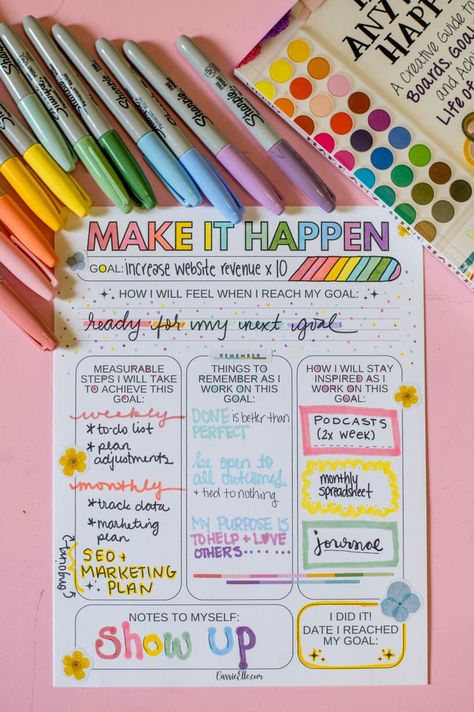 Sharpie
Sharpie
Sharpie
Sharpie
Sharpie
Sharpie
ANY
HAPP
A Creative Guide to
Boards, Goal
and Ac
Life of
MAKE IT HAPPEN
GOAL: increase website revenue x 10
HOW I WILL FEEL WHEN I REACH MY GOAL:
ready for my next goal
MEASURABLE
STEPS I WILL TAKE
TO ACHIEVE THIS
GOAL:
weekly
*to-do list
* plan
adjustments
monthly
*track data
*marketing
plan
ongoing
SEO +
MARKETING
PLAN
REMEMBER
THINGS TO
REMEMBER AS I
WORK ON THIS
GOAL:
DONE is better than
PERFECT
be open to
all outcomes
+ tied to nothing
MY PURPOSE IS
TO HELP + LOVE
OTHERS
HOW I WILL STAY
INSPIRED AS I
WORK ON THIS
GOAL:
PODCASTS
(2x week)
monthly
spreadsheet
journal
NOTES TO MYSELF:
Show UP
I DID IT!
DATE I REACHED
MY GOAL:
CarrieElle.com